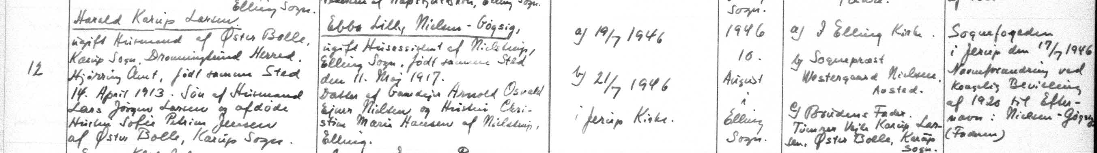 Elling Sogn.
Sogn.
Harald Karup Larsen
ugift Husmand af Øster Bolle,
Karup Sogn, Dronninglund Herred.
Hjørring Amt, født samme Sted
12
14. April 1913. Søn af Husmand
Lars Jørgen Larsen og afdøde
Hustru Sofie Petrine Jensen
af Øster Bolle, Karup Sogn.
Ebba Lilly Nielsen-Gøgsig,
ugift Husassistent af
Elling Sogn, født samme Sted
den 11. Maj 1917.
Datter af Gaardejer Arnold Osvald
Ejner Nielsen og Hustru Chri-
stine Marie Hansen af
Elling.
a) 19/7 1946
b) 21/7 1946
i Jerup Kirke.
1946
10.
August
i
Elling
Sogn.
a) I Elling Kirke.
b) Sognepræst
Westergaard Nielsen.
Aasted.
c) Brudens Fader.
Tømrer Karup Lar-
sen, Øster Bolle, Karup
Sogn.
Sognefogeden
i Jerup den 17/7 1946
Navneforandring ved
Kongelig Bevilling
af 1920 til Efter-
navn: Nielsen-Gøgsig
(Faderen)